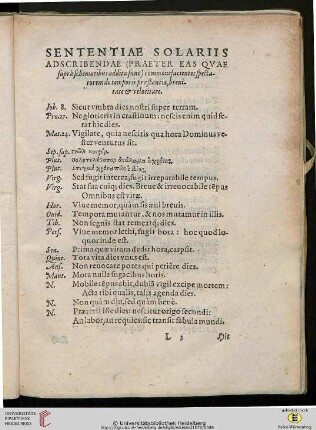 SENTENTIAE SOLARIIS
ADSCRIBENDAE (PRAETER EAS QVAE
supra schematibus additae sunt) commonefacientes specta-
torem de temporis praestantia, brevi-
tate & velocitate.
Iob. 8. Sicut vmbra dies nostri super terram.
Prouer. Ne glorieris in crastinum: nescis enim quid fe-
rat hic dies.
Mat. 24. Vigilate, quia nescitis qua hora Dominus ve-
ster venturus sit.
Plut.
Plut.
Virg. Sed fugit interea, fugit irreparabile tempus.
Virg. Stat sua cuiq; dies. Breue & irreuocabile tẽpus
Omnibus est vitæ.
Hor. Viue memor, quàm sis æui breuis.
Ouid. Tempora mutantur, & nos mutamur in illis.
Tib. Non segnis stat remeatq; dies.
Pers. Viue memor lethi, fugit hora: hoc quod lo-
quor inde est.
Sen. Prima quæ vitam dedit hora, carpsit.
Quint. Tota vita dies vnus est.
Aus. Non reuocare potes qui periêre dies.
Mant. Mota nulla fugacibus horis.
N. Mobile tẽpus abit, dubiã vigil excipe mortem:
Acta tibi qualis, talis agenda dies.
N. Non quàm diu, sed quàm benè.
N. Præterit iste dies: nescitur origo secundi:
An labor, an requies: sic transit fabula mundi.
L 3 Hic
UNIVERSITÄTS-
BIBLIOTHEK
HEIDELBERG
© Universitätsbibliothek Heidelberg